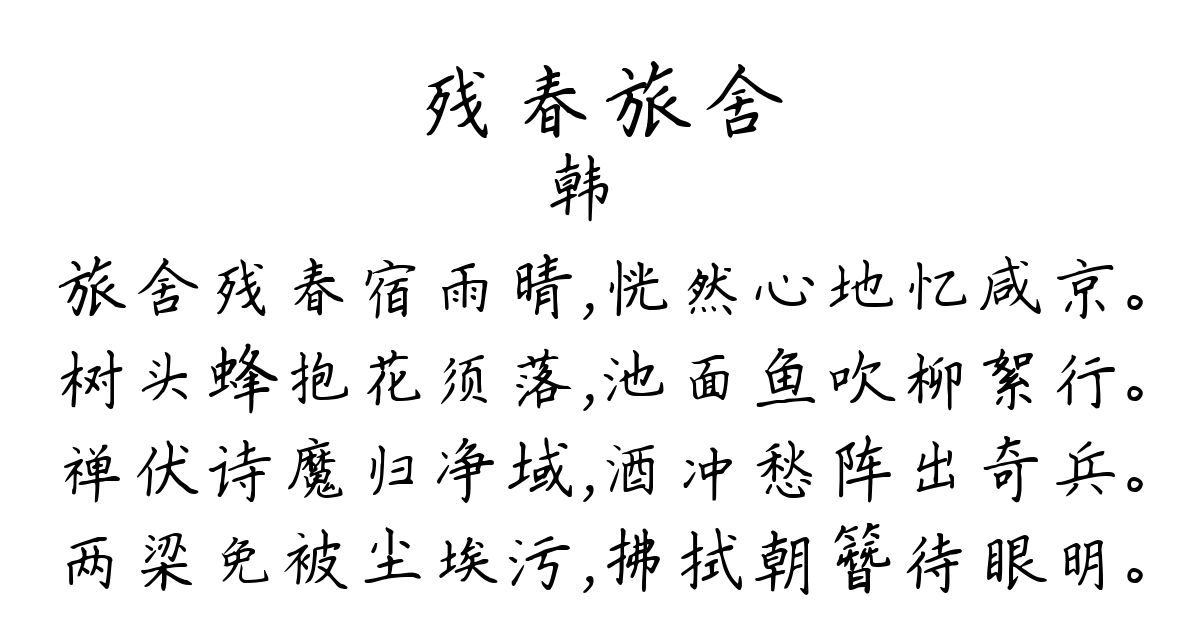 残春旅舍
韩
旅舍残春宿雨晴,恍然心地忆咸京。
树头蜂抱花须落,池面鱼吹柳絮行。
禅伏诗魔归净域,酒冲愁阵出奇兵。
两梁免被尘埃污,拂拭朝簪待眼明。